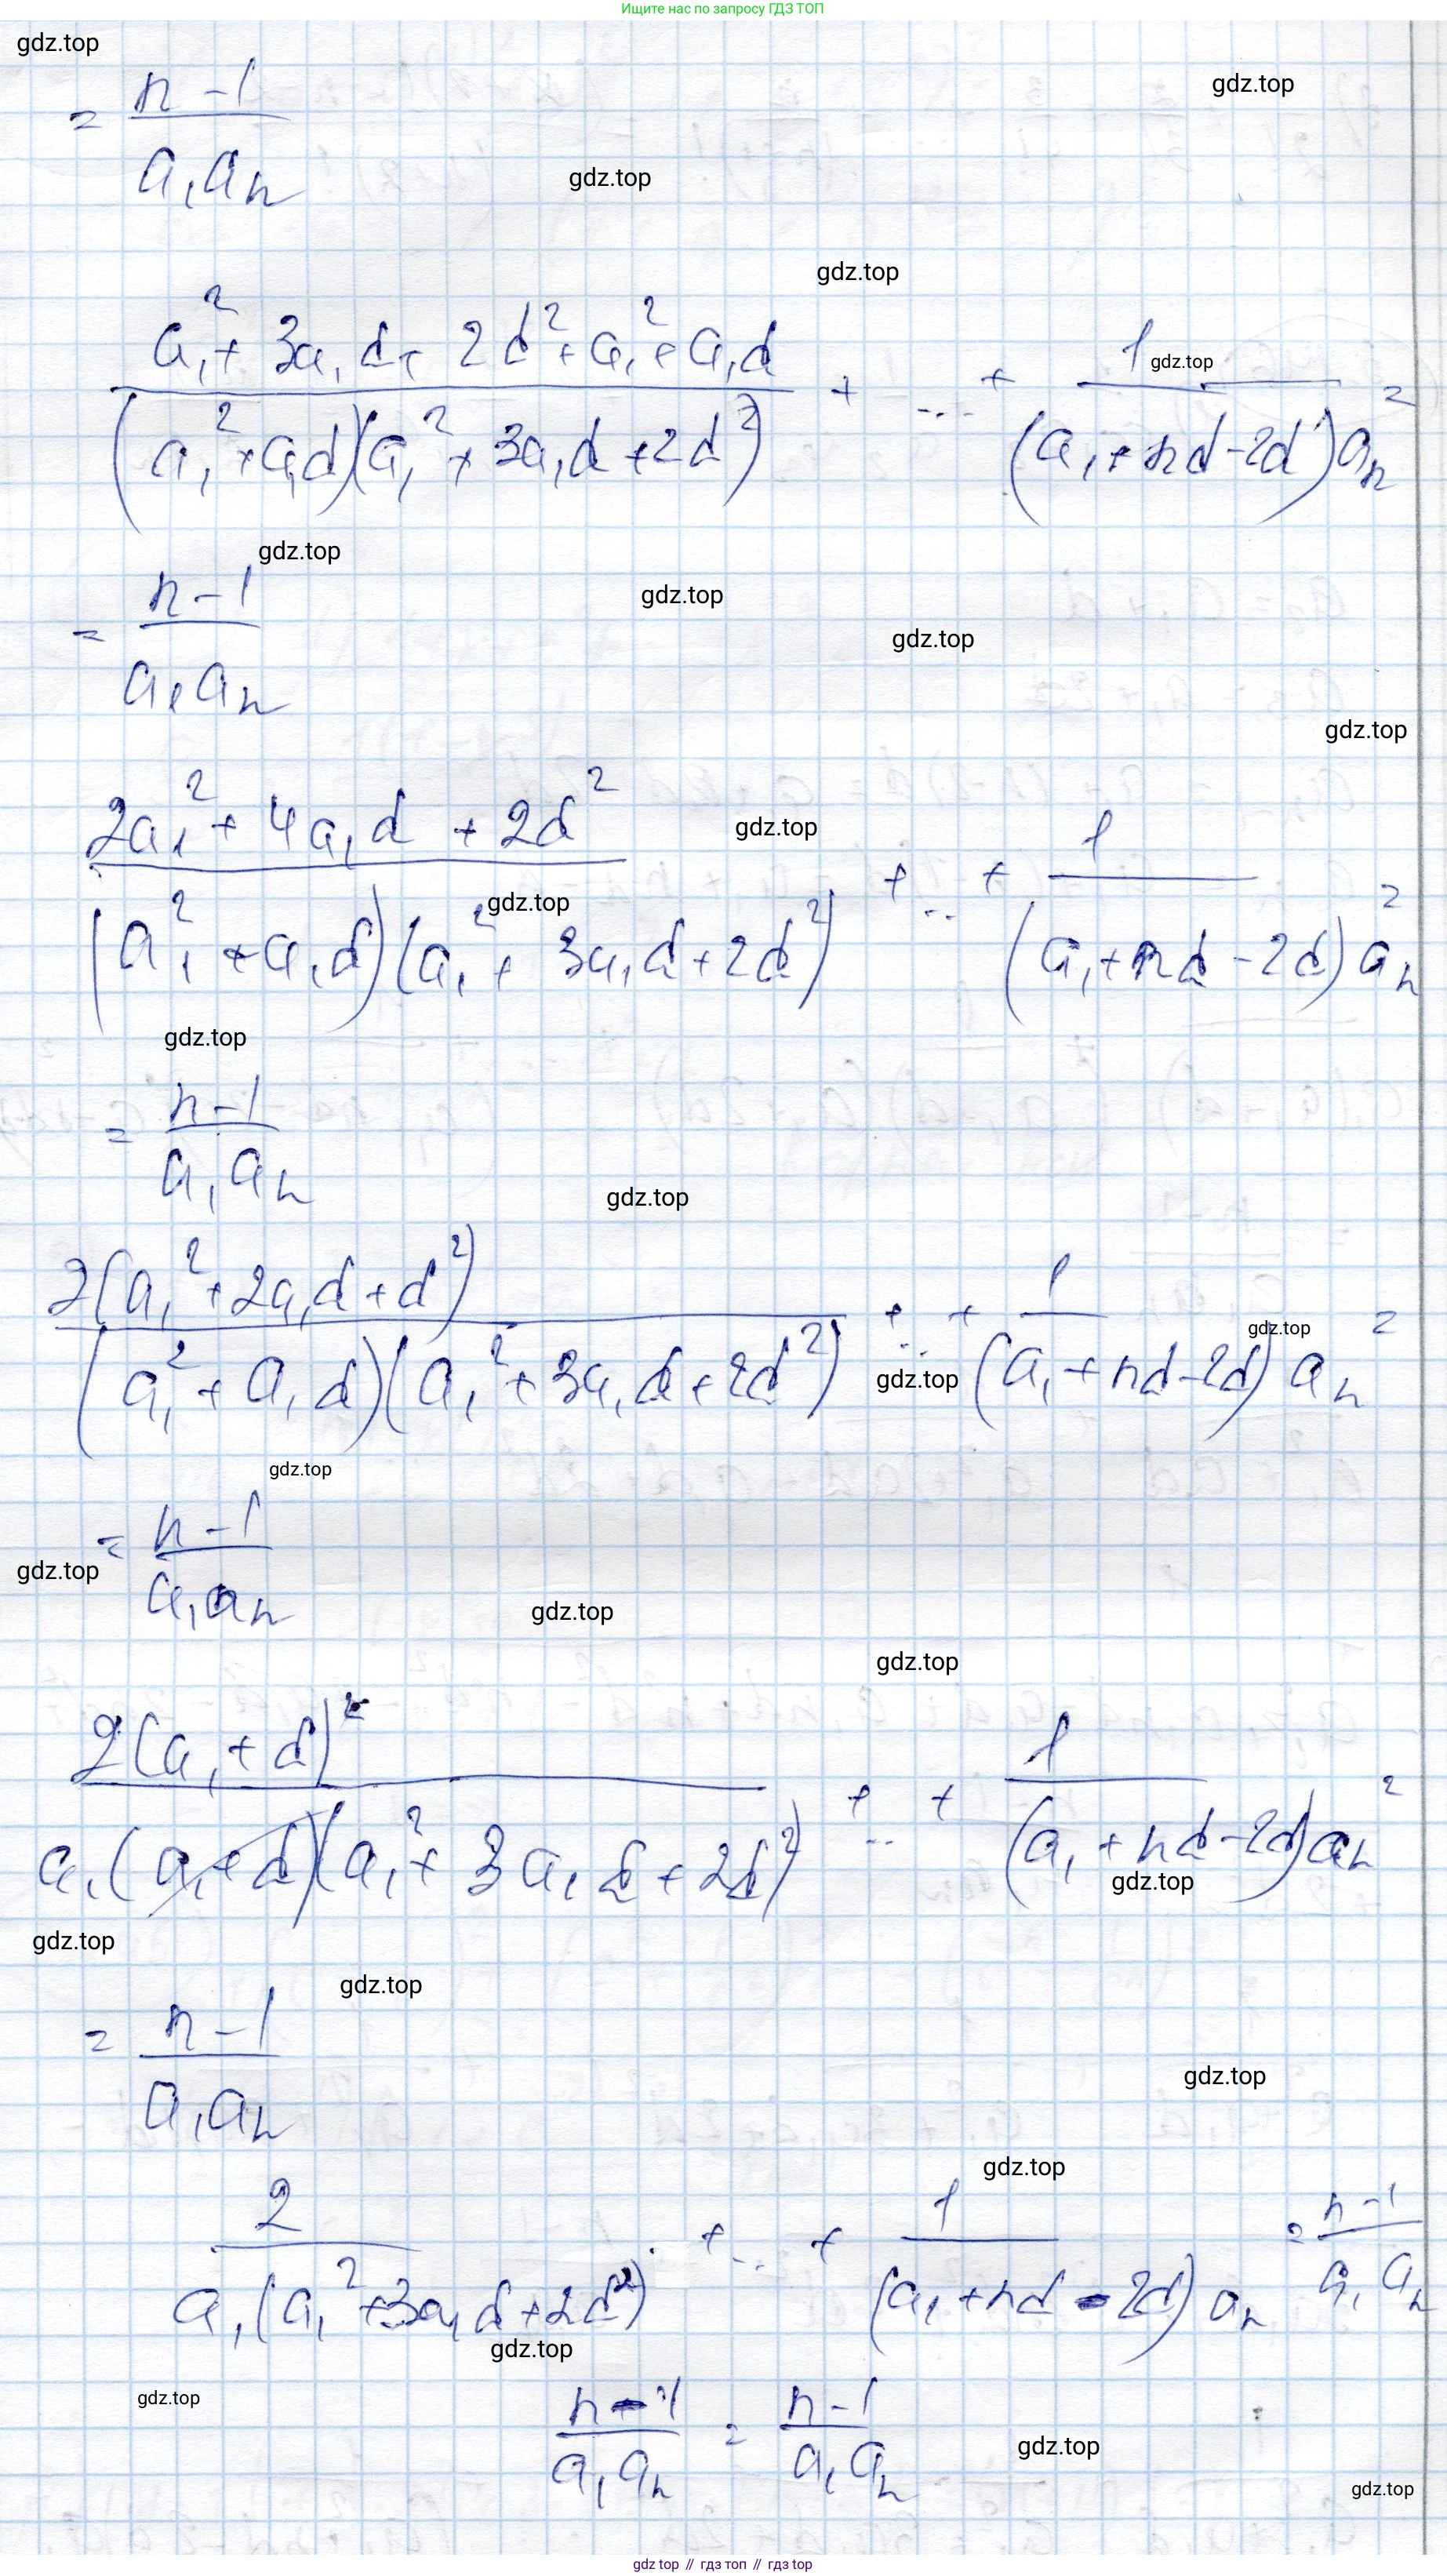 Ищите нас по запросу ГДЗ ТОП
gdz.top
gdz.top
= (n-1)/(a₁aₙ)
gdz.top
gdz.top
(a₁² + 3a₁d + 2d² + a₁² + a₁d)/((a₁² + a₁d)(a₁² + 3a₁d + 2d²)) + ... + 1/((a₁ + nd - 2d)aₙ) =
gdz.top
gdz.top
= (n-1)/(a₁aₙ)
gdz.top
gdz.top
gdz.top
(2a₁² + 4a₁d + 2d²)/((a₁² + a₁d)(a₁² + 3a₁d + 2d²)) + ... + 1/((a₁ + nd - 2d)aₙ) =
gdz.top
gdz.top
gdz.top
= (n-1)/(a₁aₙ)
gdz.top
2(a₁² + 2a₁d + d²)/((a₁² + a₁d)(a₁² + 3a₁d + 2d²)) + ... + 1/((a₁ + nd - 2d)aₙ) =
gdz.top
gdz.top
gdz.top
= (n-1)/(a₁aₙ)
gdz.top
gdz.top
gdz.top
2(a₁ + d)²/(a₁(a₁ + d)(a₁² + 3a₁d + 2d²)) + ... + 1/((a₁ + nd - 2d)aₙ) =
gdz.top
gdz.top
gdz.top
= (n-1)/(a₁aₙ)
gdz.top
gdz.top
2/(a₁(a₁² + 3a₁d + 2d²)) + ... + 1/((a₁ + nd - 2d)aₙ) = (n-1)/(a₁aₙ)
gdz.top
gdz.top
(n-1)/(a₁aₙ) = (n-1)/(a₁aₙ)
gdz.top
gdz.top
gdz top // гдз топ // гдз top